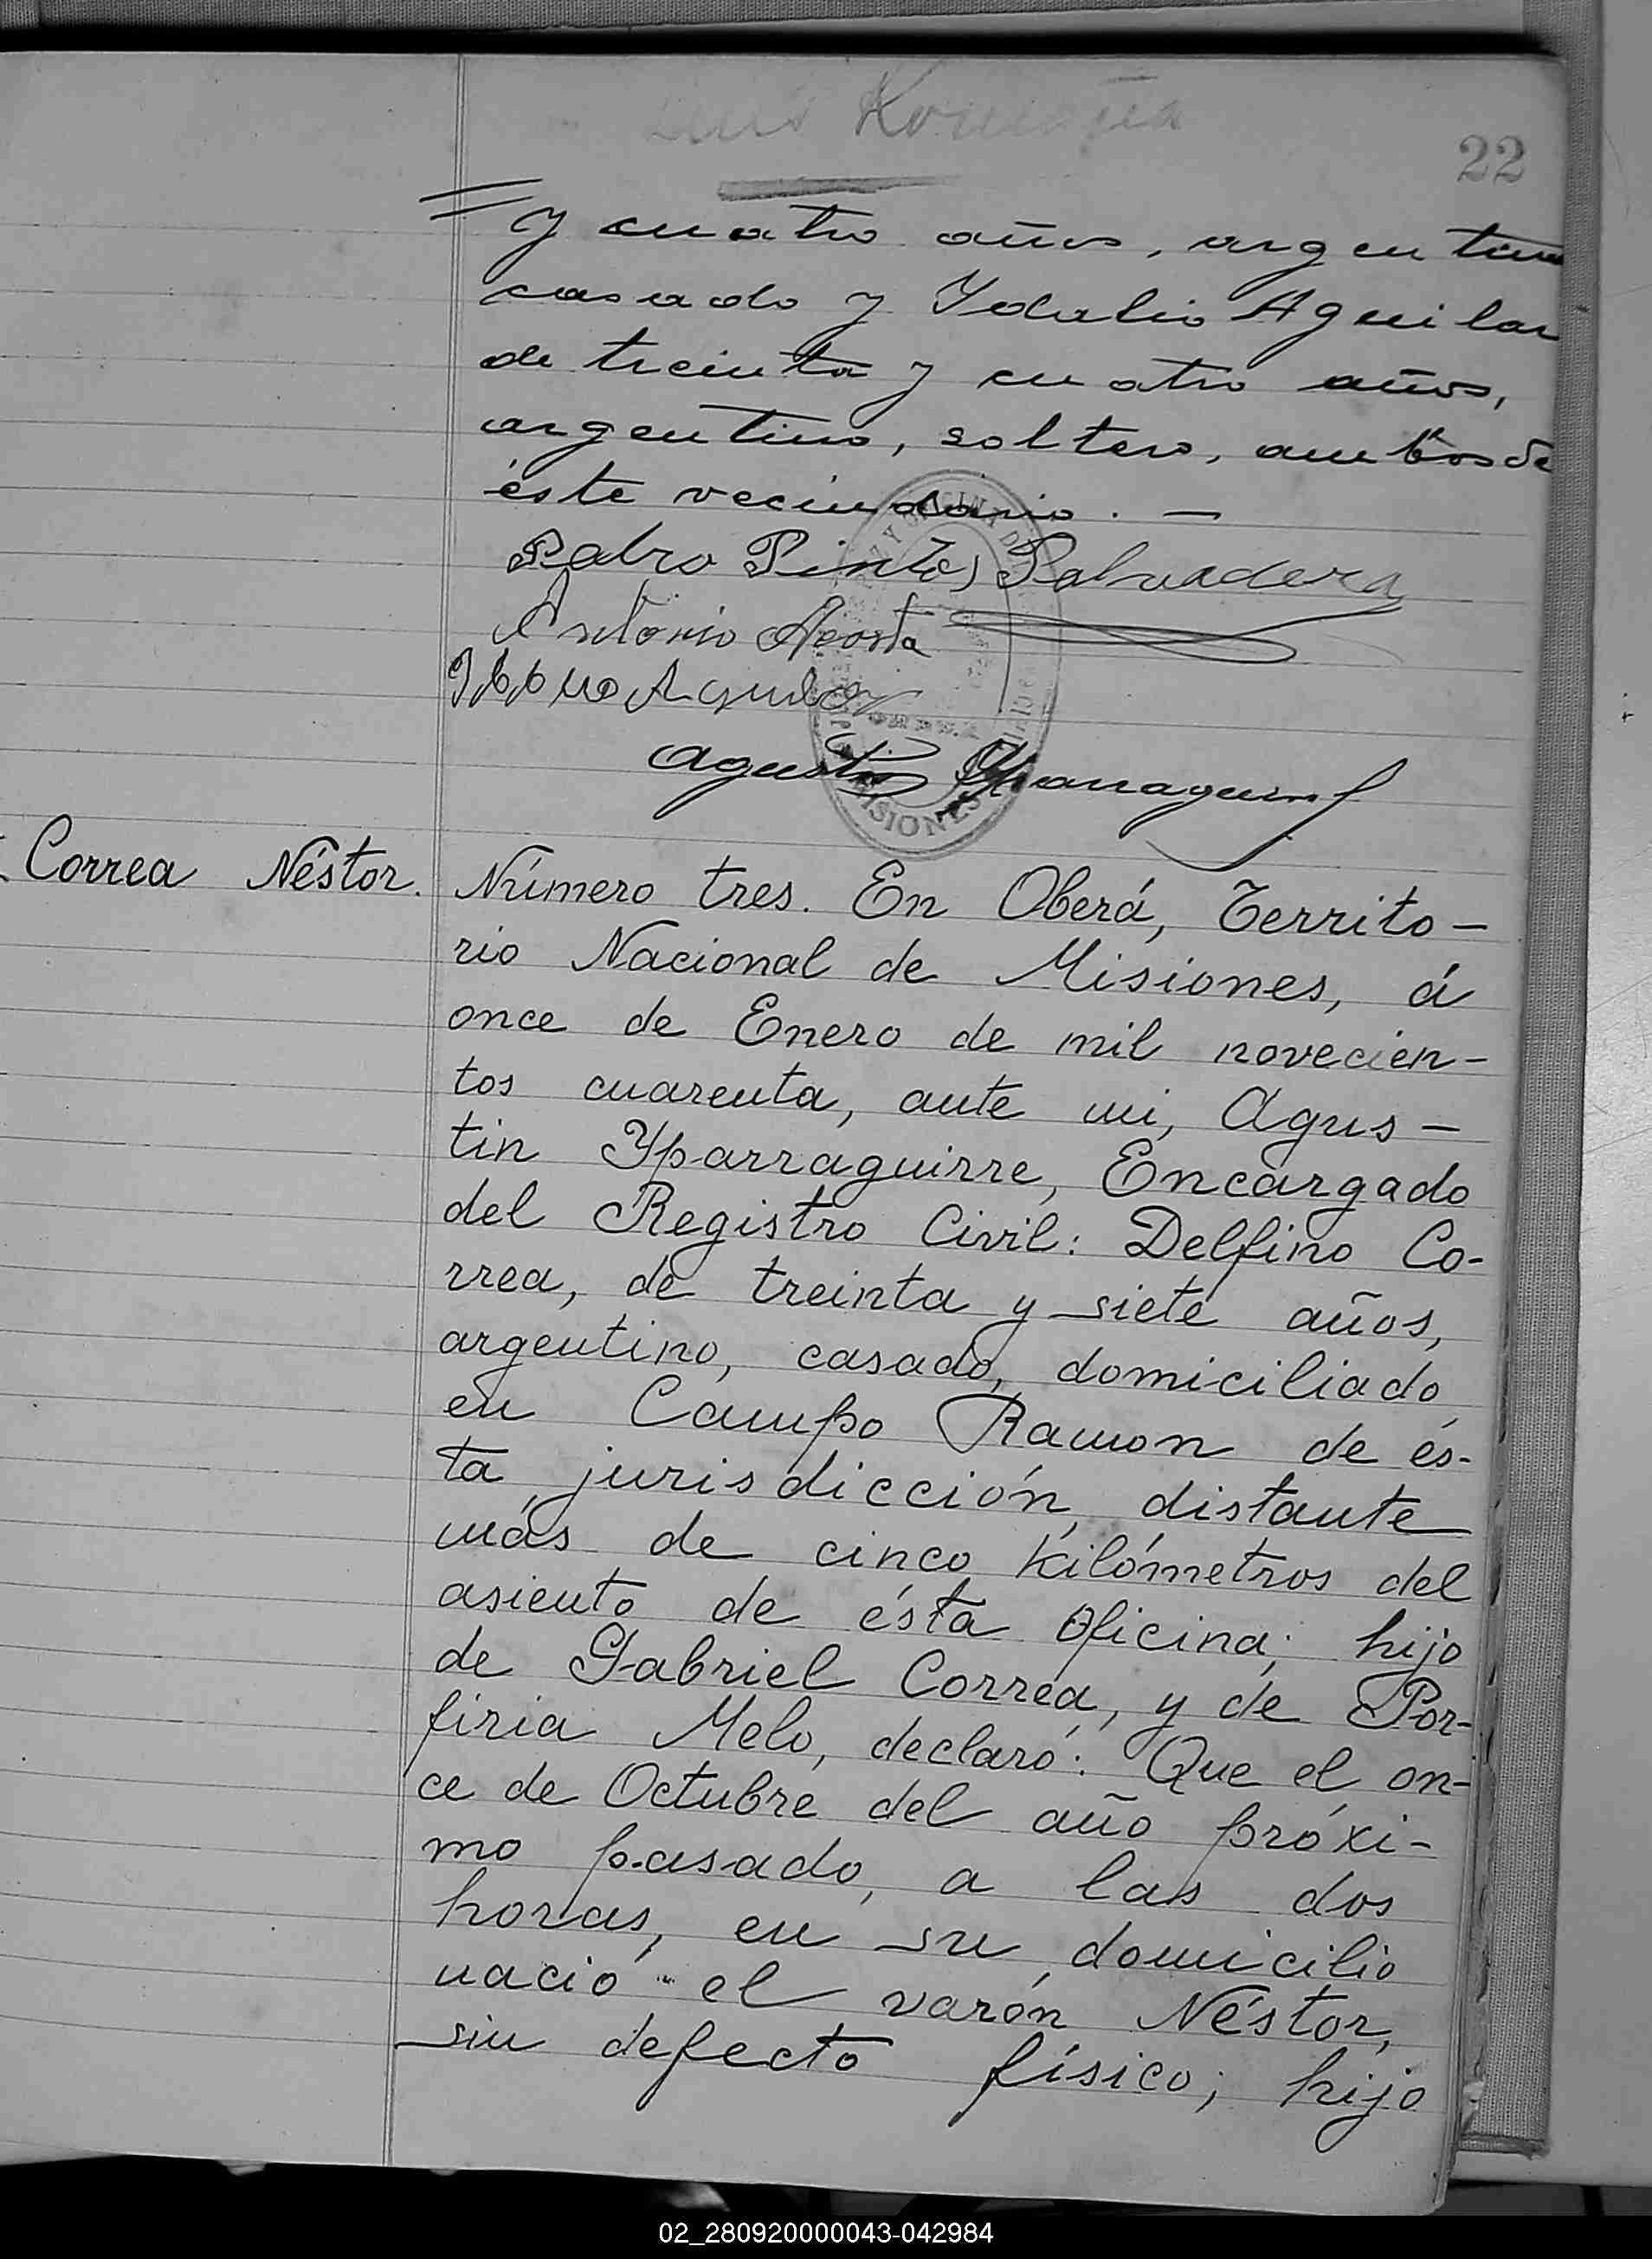 Luis
22
y cuatro años, argentino
casado y Ydalio Aguilar
de treinta y cuatro años,
argentino, soltero, ambos de
éste vecindario. —
Pedro Pintos Salvadera
Antonio Acosta
Agustin Yparraguirre
MISIONES
Correa Néstor.
Número tres. En Oberá, Territo-
rio Nacional de Misiones, á
once de Enero de mil novecien-
tos cuarenta, ante mi, Agus-
tin Yparraguirre, Encargado
del Registro Civil: Delfino Co-
rrea, de treinta y siete años,
argentino, casado, domiciliado
en Campo Ramon de és-
ta jurisdicción, distante
más de cinco kilómetros del
asiento de ésta Oficina; hijo
de Gabriel Correa, y de Por-
firia Melo, declaró: Que el on-
ce de Octubre del año próxi-
mo pasado, a las dos
horas, en su domicilio
nació el varón Néstor,
sin defecto físico; hijo
02_280920000043-042984